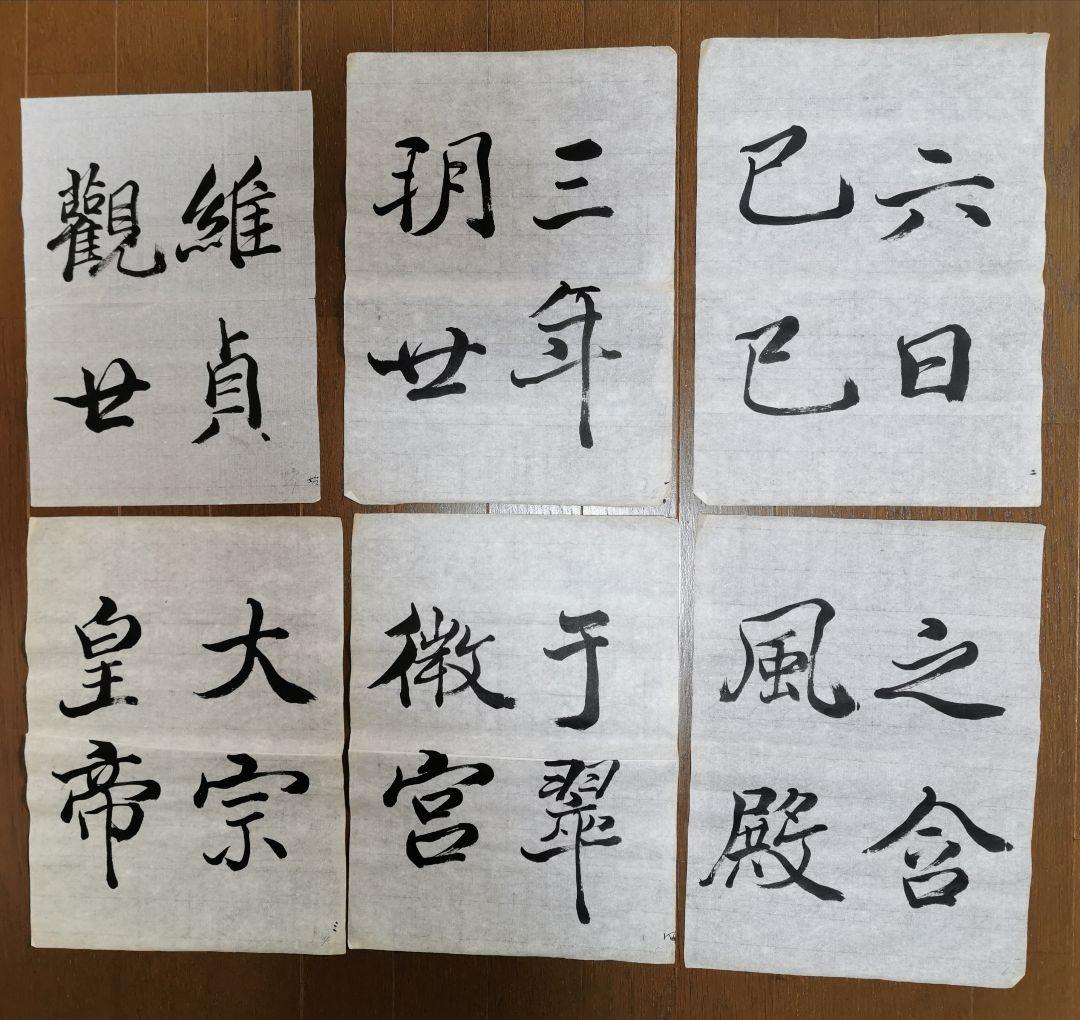 維貞
觀廿
三年
玥廿
六日
己巳
大宗
皇帝
于翠
微宮
之含
風殿